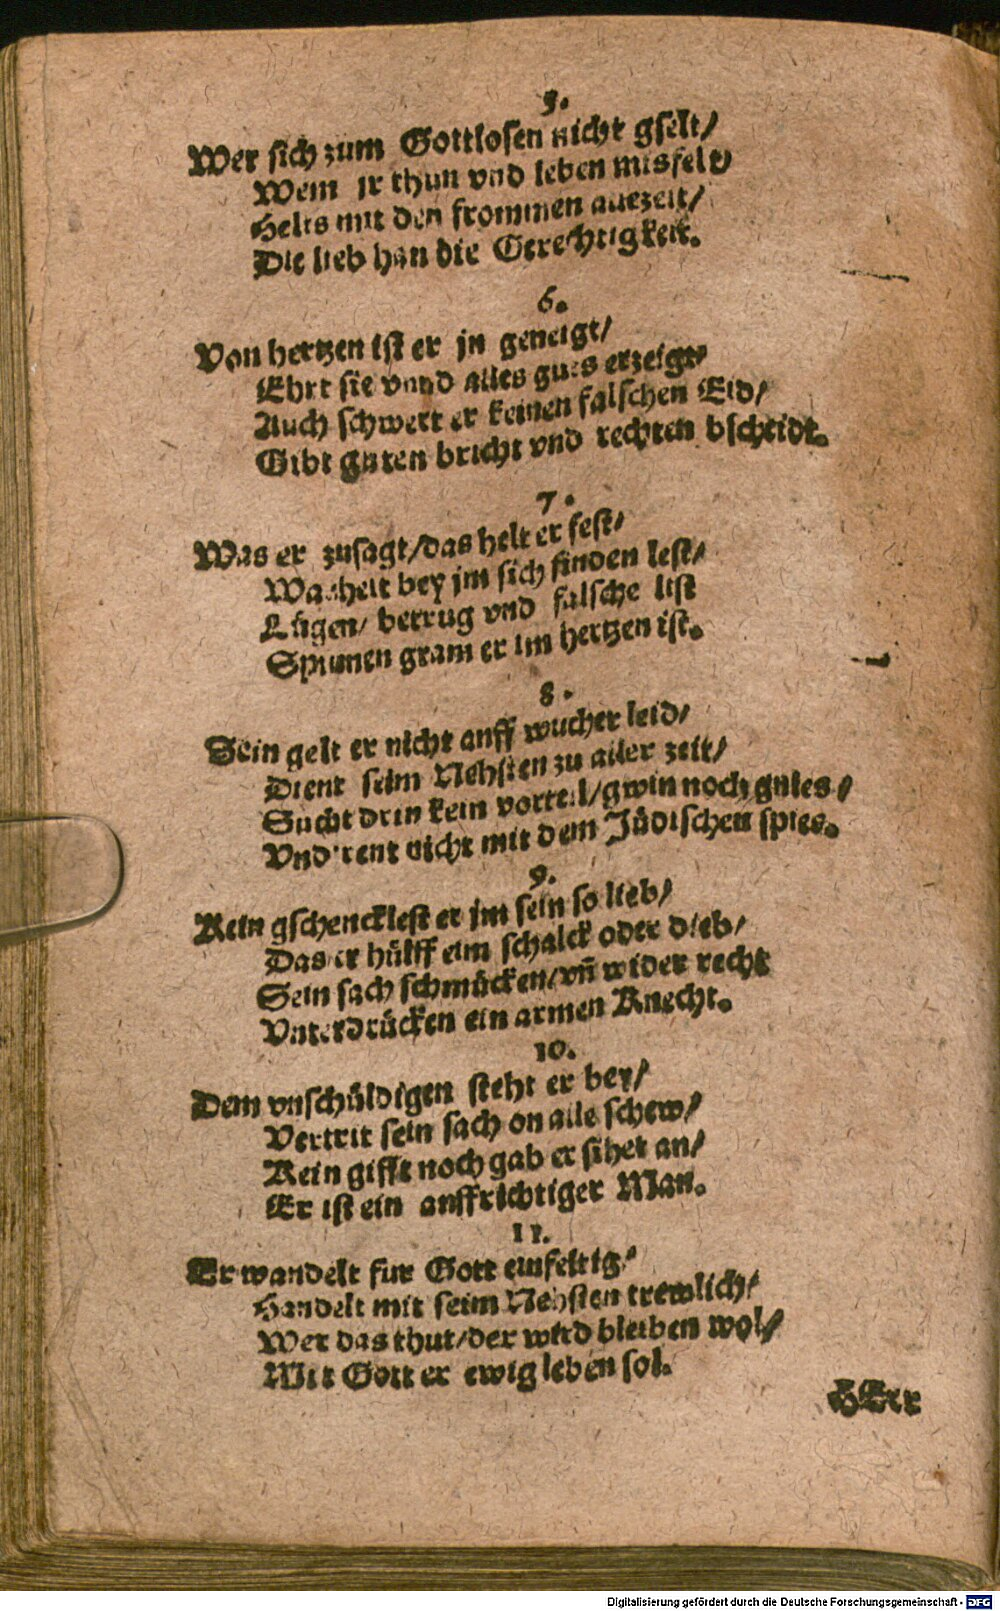 5.
Wer sich zum Gottlosen nicht gselt/
Wem jr thun vnd leben misfelt/
Helts mit den frommen allezeit/
Die lieb han die Gerechtigkeit.
6.
Von hertzen ist er jn geneigt/
Ehrt sie vnnd alles guts erzeigt/
Auch schwert er keinen falschen Eid/
Gibt guten bricht vnd rechten bscheidt.
7.
Was er zusagt/das helt er fest/
Warheit bey jm sich finden lest/
Lügen/ betrug vnd falsche list
Spinnen gram er im hertzen ist.
8.
Sein gelt er nicht auff wucher leid/
Dient seim Nehsten zu aller zeit/
Sucht drin kein vorteil/gwin noch gnies/
Vnd rent nicht mit dem Jüdischen spies.
9.
Kein gschenck lest er jm sein so lieb/
Das er hülff eim schalck oder dieb/
Sein sach schmücken/vñ wider recht
Vnterdrücken ein armen Knecht.
10.
Dem vnschüldigen steht er bey/
Vertrit sein sach on alle schew/
Kein gifft noch gab er sihet an/
Er ist ein auffrichtiger Man.
11.
Er wandelt fur Gott einfeltig/
Handelt mit seim Nehsten trewlich/
Wer das thut/der wird bleiben wol/
Mit Gott er ewig leben sol.
HErr
Digitalisierung gefördert durch die Deutsche Forschungsgemeinschaft - DFG